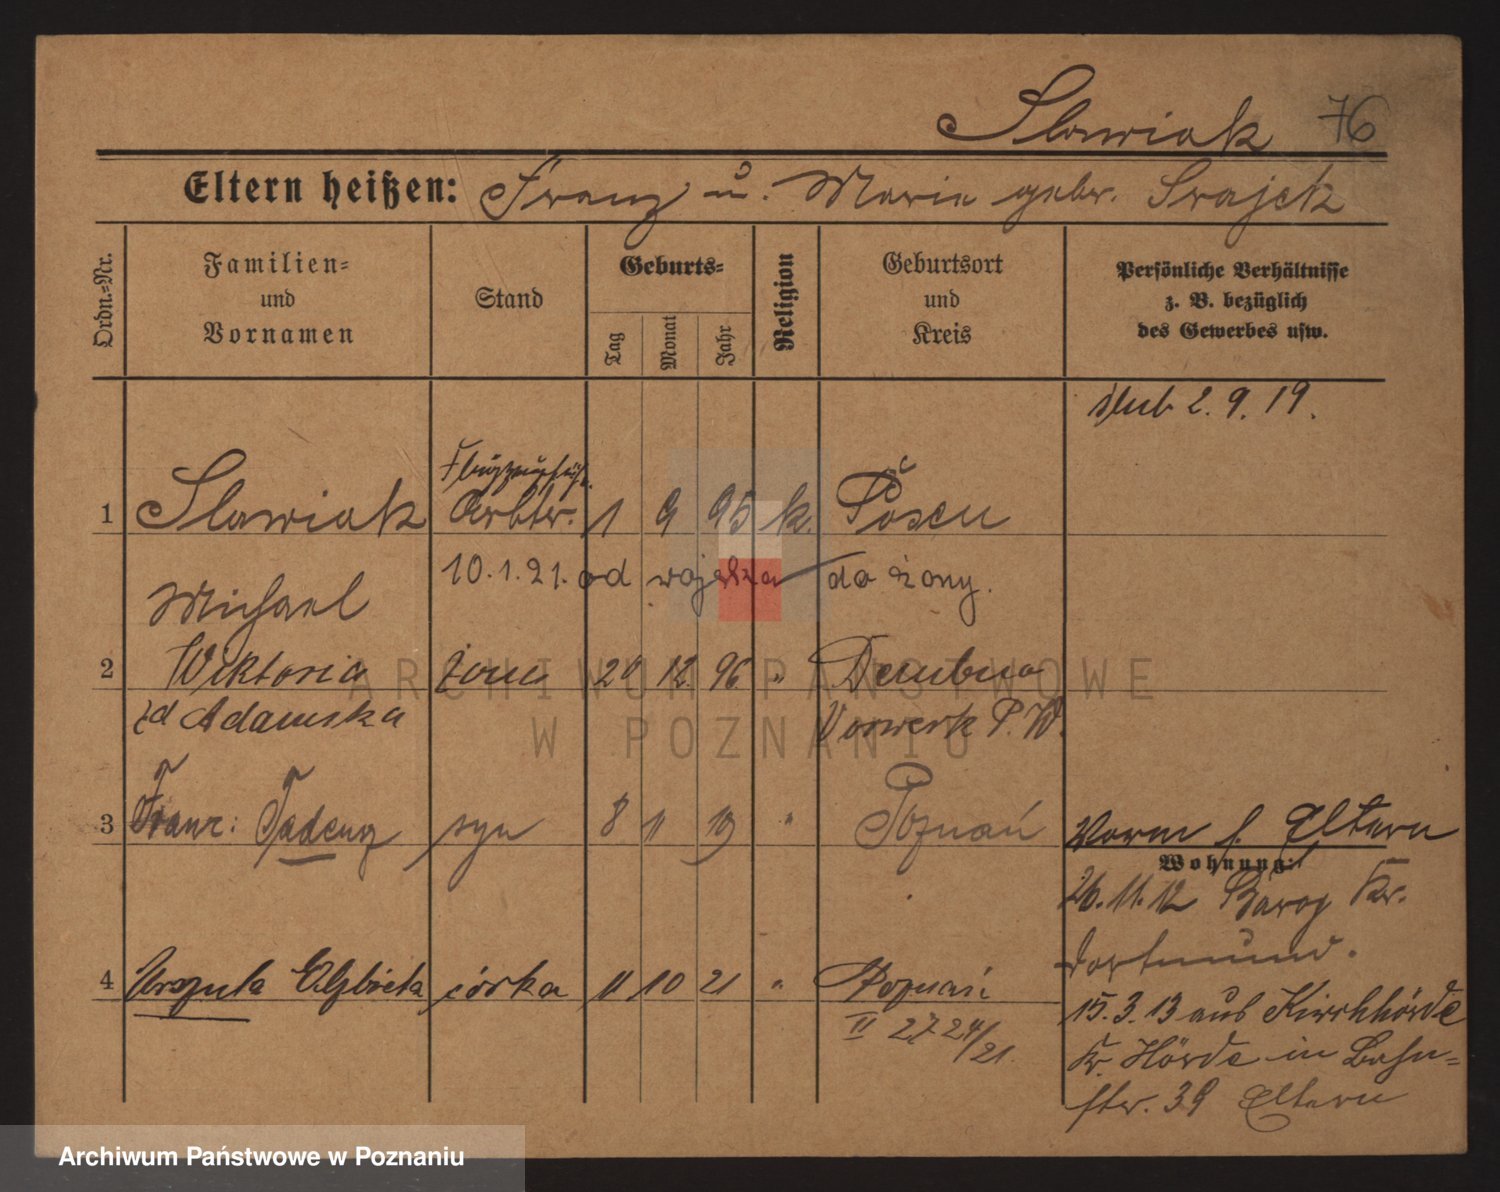 Slawiak 76
Eltern heißen: Franz u. Marie gebr. Srajek
Ordn.-Nr.
Familien-
und
Vornamen
Stand
Geburts-
Tag
Monat
Jahr
Religion
Geburtsort
und
Kreis
Persönliche Verhältnisse
z. B. bezüglich
des Gewerbes usw.
ślub 2. 9. 19.
1 Slawiak Arbtr. 1 9 95 k. Posen
10. 1. 21. od wojska do żony.
Michael
2 Wiktoria żona 20 12. 96. " Dembno
zd Adamska Vorwerk P. W.
3 Franc: Tadeusz syn 8 11 19 " Poznań
Vorm b. Eltern
Wohnung:
26. 11. 12 Barop Kr.
Dortmund.
4 Urszula Elżbieta córka 11 10 21 " Poznań
II 2724/21.
15. 3. 13 aus Kirchhörde
Kr. Hörde in Bahn-
str. 39 Eltern
ARCHIWUM PAŃSTWOWE
W POZNANIU
Archiwum Państwowe w Poznaniu